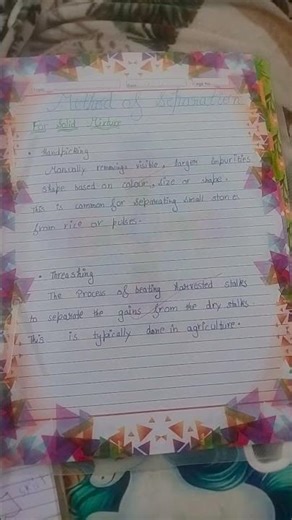 Method of Separation
For Solid Mixture
• Handpicking
Manually removings visible, larger impurities
shape based on colour, size or shape.
This is common for separating small stones
from rice or pulse.
• Threashing
The Process of beating harvested stalks
to separate the gains from the dry stalks.
This is typically done in agriculture.